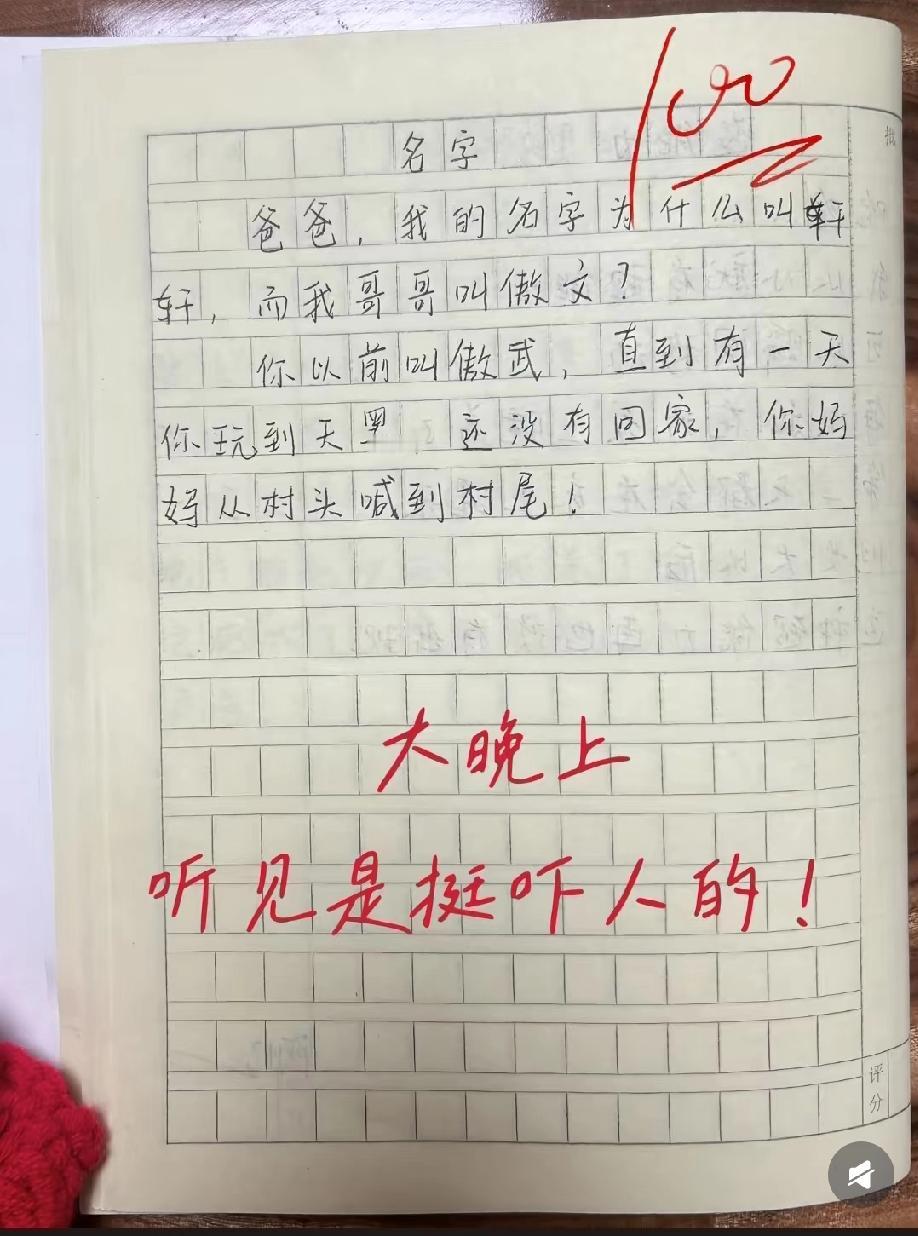 100
名字
爸爸，我的名字为什么叫轩
轩，而我哥哥叫傲文？
你以前叫傲武，直到有一天
你玩到天黑，还没有回家，你妈
妈从村头喊到村尾！
大晚上
听见是挺吓人的！
评
分